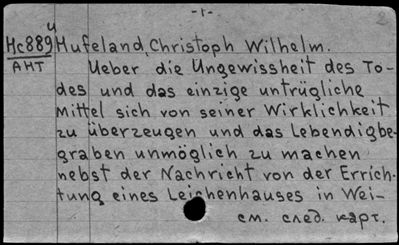 -1-
2
Hc889 y Hufeland, Christoph Wilhelm.
АНТ Ueber die Ungewissheit des To-
des und das einzige untrügliche
Mittel sich von seiner Wirklichkeit
zu überzeugen und das Lebendigbe-
graben unmöglich zu machen
nebst der Nachricht von der Errich-
tung eines Leichenhauses in Wei-
см. след. карт.